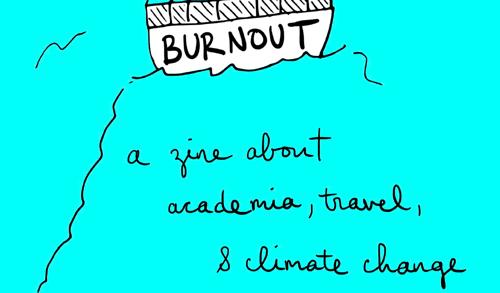 BURNOUT
a zine about
academia, travel,
& climate change